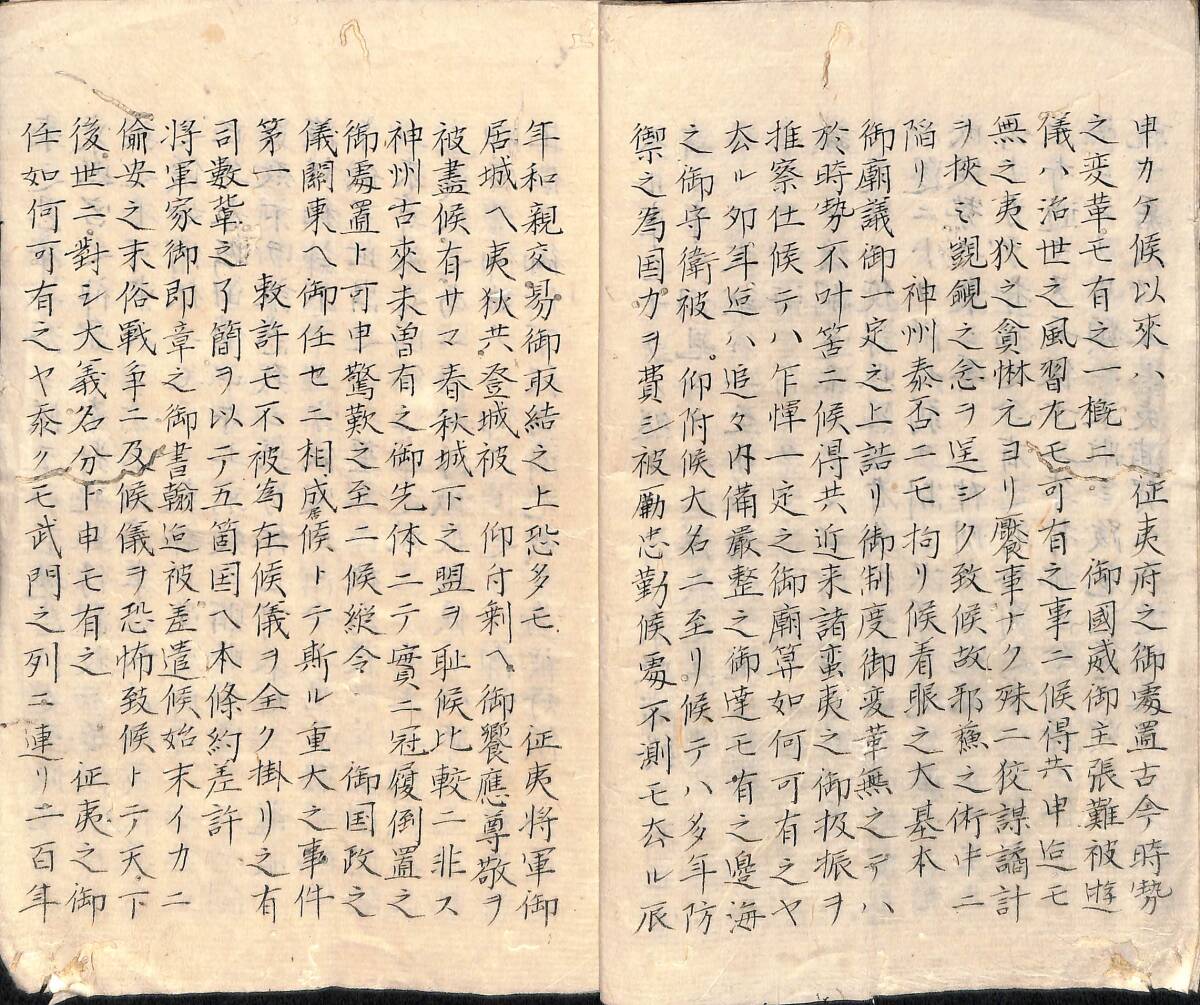 申カケ候以來ハ　征夷府之御處置古今時勢
之変革モ有之一概ニ　御國威御主張難被遊
儀ハ治世之風習尤モ可有之事ニ候得共申迠モ
無之夷狄之貪惏元ヨリ饜事ナク殊ニ狡謀譎計
ヲ挾ミ覬覦之念ヲ逞シク致候故邪蘓之術中ニ
陷リ　神州泰否ニモ拘リ候着眼之大基本
御廟議御一定之上詰リ御制度御変革無之テハ
於時勢不叶筈ニ候得共近来諸蛮夷之御扱振ヲ
推察仕候テハ乍憚一定之御廟算如何可有之ヤ
厺ル卯年迠ハ追々内備嚴整之御達モ有之邊海
之御守衛被　仰附候大名ニ至リ候テハ多年防
禦之為国力ヲ費シ被勵忠勤候處不測モ厺ル辰
年和親交昜御取結之上恐多モ　征夷将軍御
居城ヘ夷狄共登城被　仰付剰ヘ御饗應尊敬ヲ
被盡候有サマ春秋城下之盟ヲ耻候比較ニ非ス
神州古來未曽有之御失体ニテ實ニ冠履倒置之
御處置ト可申驚歎之至ニ候縦令　御国政之
儀關東ヘ御任セニ相成居候トテ斯ル重大之事件
第一　敕許モ不被為在候儀ヲ全ク掛リ之有
司數輩之了簡ヲ以テ五箇国ヘ本條約差許
将軍家御即章之御書翰迠被差遣候始末イカニ
偷安之末俗戰爭ニ及候儀ヲ恐怖致候トテ天下
後世ニ對シ大義名分ト申モ有之　征夷之御
任如何可有之ヤ泰クモ武門之列ニ連リ二百年